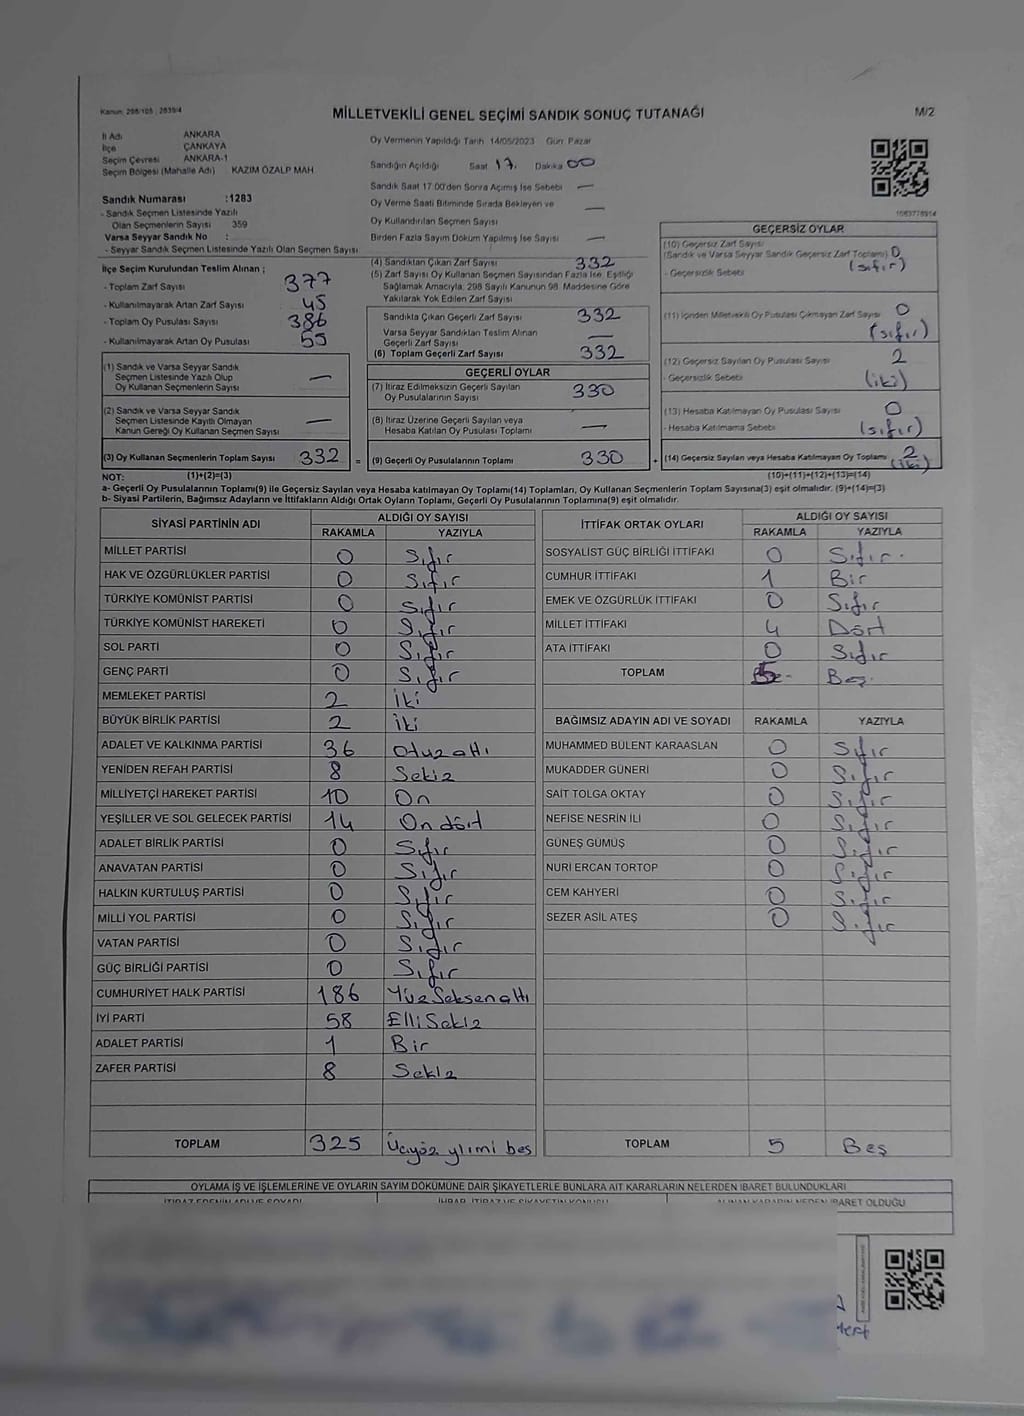 Kanun: 298/105 ; 2839/4
MİLLETVEKİLİ GENEL SEÇİMİ SANDIK SONUÇ TUTANAĞI
M/2
İl Adı ANKARA
İlçe ÇANKAYA
Seçim Çevresi ANKARA-1
Seçim Bölgesi (Mahalle Adı) KAZIM ÖZALP MAH.
Sandık Numarası :1283
- Sandık Seçmen Listesinde Yazılı
Olan Seçmenlerin Sayısı 359
Varsa Seyyar Sandık No :
- Seyyar Sandık Seçmen Listesinde Yazılı Olan Seçmen Sayısı
Oy Vermenin Yapıldığı Tarih 14/05/2023 Gün: Pazar
Sandığın Açıldığı Saat 17. Dakika 00
Sandık Saat 17.00'den Sonra Açımış İse Sebebi —
Oy Verme Saati Bitiminde Sırada Bekleyen ve —
Oy Kullandırılan Seçmen Sayısı
Birden Fazla Sayım Döküm Yapılmış İse Sayısı —
1063778914
İlçe Seçim Kurulundan Teslim Alınan ;
- Toplam Zarf Sayısı 377
- Kullanılmayarak Artan Zarf Sayısı 45
- Toplam Oy Pusulası Sayısı 386
- Kullanılmayarak Artan Oy Pusulası 55
(1) Sandık ve Varsa Seyyar Sandık
Seçmen Listesinde Yazılı Olup —
Oy Kullanan Seçmenlerin Sayısı
(2) Sandık ve Varsa Seyyar Sandık
Seçmen Listesinde Kayıtlı Olmayan —
Kanun Gereği Oy Kullanan Seçmen Sayısı
(3) Oy Kullanan Seçmenlerin Toplam Sayısı 332 =
(4) Sandıktan Çıkan Zarf Sayısı 332
(5) Zarf Sayısı Oy Kullanan Seçmen Sayısından Fazla İse, Eşitliği
Sağlamak Amacıyla, 298 Sayılı Kanunun 98. Maddesine Göre
Yakılarak Yok Edilen Zarf Sayısı
Sandıkta Çıkan Geçerli Zarf Sayısı 332
Varsa Seyyar Sandıktan Teslim Alınan
Geçerli Zarf Sayısı —
(6) Toplam Geçerli Zarf Sayısı 332
GEÇERLİ OYLAR
(7) İtiraz Edilmeksizin Geçerli Sayılan
Oy Pusulalarının Sayısı 330
(8) İtiraz Üzerine Geçerli Sayılan veya
Hesaba Katılan Oy Pusulası Toplamı —
(9) Geçerli Oy Pusulalarının Toplamı 330 +
GEÇERSİZ OYLAR
(10) Geçersiz Zarf Sayısı
(Sandık ve Varsa Seyyar Sandık Geçersiz Zarf Toplamı) 0
- Geçersizlik Sebebi (sıfır)
(11) İçinden Milletvekili Oy Pusulası Çıkmayan Zarf Sayısı 0
(sıfır)
(12) Geçersiz Sayılan Oy Pusulası Sayısı 2
- Geçersizlik Sebebi (iki)
(13) Hesaba Katılmayan Oy Pusulası Sayısı 0
- Hesaba Katılmama Sebebi (sıfır)
(14) Geçersiz Sayılan veya Hesaba Katılmayan Oy Toplamı 2
(iki)
NOT: (1)+(2)=(3)
(10)+(11)+(12)+(13)=(14)
a- Geçerli Oy Pusulalarının Toplamı(9) ile Geçersiz Sayılan veya Hesaba katılmayan Oy Toplamı(14) Toplamları, Oy Kullanan Seçmenlerin Toplam Sayısına(3) eşit olmalıdır. (9)+(14)=(3)
b- Siyasi Partilerin, Bağımsız Adayların ve İttifakların Aldığı Ortak Oyların Toplamı, Geçerli Oy Pusulalarının Toplamına(9) eşit olmalıdır.
SİYASİ PARTİNİN ADI ALDIĞI OY SAYISI
RAKAMLA YAZIYLA
MİLLET PARTİSİ 0 Sıfır
HAK VE ÖZGÜRLÜKLER PARTİSİ 0 Sıfır
TÜRKİYE KOMÜNİST PARTİSİ 0 Sıfır
TÜRKİYE KOMÜNİST HAREKETİ 0 Sıfır
SOL PARTİ 0 Sıfır
GENÇ PARTİ 0 Sıfır
MEMLEKET PARTİSİ 2 İki
BÜYÜK BİRLİK PARTİSİ 2 İki
ADALET VE KALKINMA PARTİSİ 36 Otuzaltı
YENİDEN REFAH PARTİSİ 8 Sekiz
MİLLİYETÇİ HAREKET PARTİSİ 10 On
YEŞİLLER VE SOL GELECEK PARTİSİ 14 On dört
ADALET BİRLİK PARTİSİ 0 Sıfır
ANAVATAN PARTİSİ 0 Sıfır
HALKIN KURTULUŞ PARTİSİ 0 Sıfır
MİLLİ YOL PARTİSİ 0 Sıfır
VATAN PARTİSİ 0 Sıfır
GÜÇ BİRLİĞİ PARTİSİ 0 Sıfır
CUMHURİYET HALK PARTİSİ 186 Yüz Seksen altı
İYİ PARTİ 58 Elli Sekiz
ADALET PARTİSİ 1 Bir
ZAFER PARTİSİ 8 Sekiz
TOPLAM 325 Üçyüz yirmi beş
İTTİFAK ORTAK OYLARI ALDIĞI OY SAYISI
RAKAMLA YAZIYLA
SOSYALİST GÜÇ BİRLİĞİ İTTİFAKI 0 Sıfır
CUMHUR İTTİFAKI 1 Bir
EMEK VE ÖZGÜRLÜK İTTİFAKI 0 Sıfır
MİLLET İTTİFAKI 4 Dört
ATA İTTİFAKI 0 Sıfır
TOPLAM 5 Beş
BAĞIMSIZ ADAYIN ADI VE SOYADI RAKAMLA YAZIYLA
MUHAMMED BÜLENT KARAASLAN 0 Sıfır
MUKADDER GÜNERİ 0 Sıfır
SAİT TOLGA OKTAY 0 Sıfır
NEFİSE NESRİN İLİ 0 Sıfır
GÜNEŞ GÜMÜŞ 0 Sıfır
NURİ ERCAN TORTOP 0 Sıfır
CEM KAHYERİ 0 Sıfır
SEZER ASİL ATEŞ 0 Sıfır
TOPLAM 5 Beş
OYLAMA İŞ VE İŞLEMLERİNE VE OYLARIN SAYIM DÖKÜMÜNE DAİR ŞİKAYETLERLE BUNLARA AİT KARARLARIN NELERDEN İBARET BULUNDUKLARI
İTİRAZ EDENİN ADI VE SOYADI İHBAR, İTİRAZ VE ŞİKAYETİN KONUSU ALINAN KARARIN NEDEN İBARET OLDUĞU